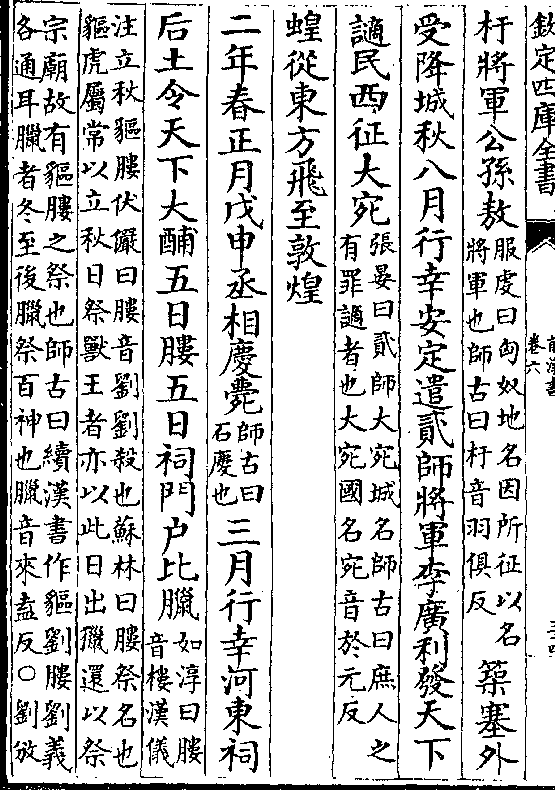 欽定四庫全書
前漢書
卷六
杅將軍公孫敖
服虔曰匈奴地名因所征以名
將軍也師古曰杅音羽俱反
築塞外
受降城秋八月行幸安定遣貳師將軍李廣利發天下
讁民西征大宛
張晏曰貳師大宛城名師古曰庶人之
有罪讁者也大宛國名宛音於元反
蝗從東方飛至敦煌
二年春正月戊申丞相慶薨
師古曰
石慶也
三月行幸河東祠
后土令天下大酺五日膢五日祠門户比臘
如淳曰膢
音樓漢儀
注立秋貙膢伏儼曰膢音劉劉殺也蘇林曰膢祭名也
貙虎屬常以立秋日祭獸王者亦以此日出獵還以祭
宗廟故有貙膢之祭也師古曰續漢書作貙劉膢劉義
各通耳臘者冬至後臘祭百神也臘音來盍反○劉攽